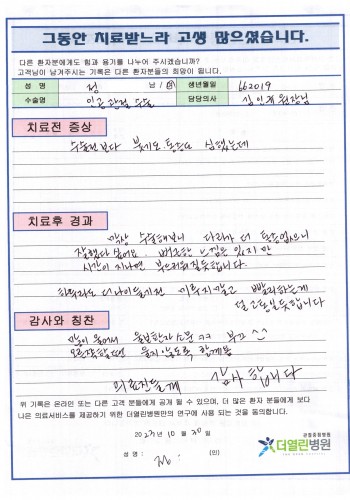 그동안 치료받느라 고생 많으셨습니다.
다른 환자분에게도 힘과 용기를 나누어 주시겠습니까?
고객님이 남겨주시는 기록은 다른 환자분들의 희망이 됩니다.
성 명 정 님 / 생년월일 662019
수술명 인공관절 수술 담당의사 심인계 원장님
치료전 증상
수술전보다 붓기도 통증도 심했는데
치료후 경과
막상 수술해보니 다리가 더 통증없으니
잘했다 싶어요. 뻐근한 느낌은 있지만
시간이 지나면 부드러워질듯합니다
하루라도 더 나이들기전 미루지말고 빨리하는게
덜 고통일듯합니다
감사와 칭찬
많이 울어서 울보환자 소문 ㅋㅋ 부끄^^
오른쪽할때는 울지 않도록 할게용
의료진들께 감사합니다
위 기록은 온라인 또는 다른 고객 분들에게 공개 될 수 있으며, 더 많은 환자 분들에게 보다
나은 의료서비스를 제공하기 위한 더열린병원만의 연구에 사용 되는 것을 동의합니다.
2023년 10 월 30일
성 명 : (인)
관절중점병원
더열린병원